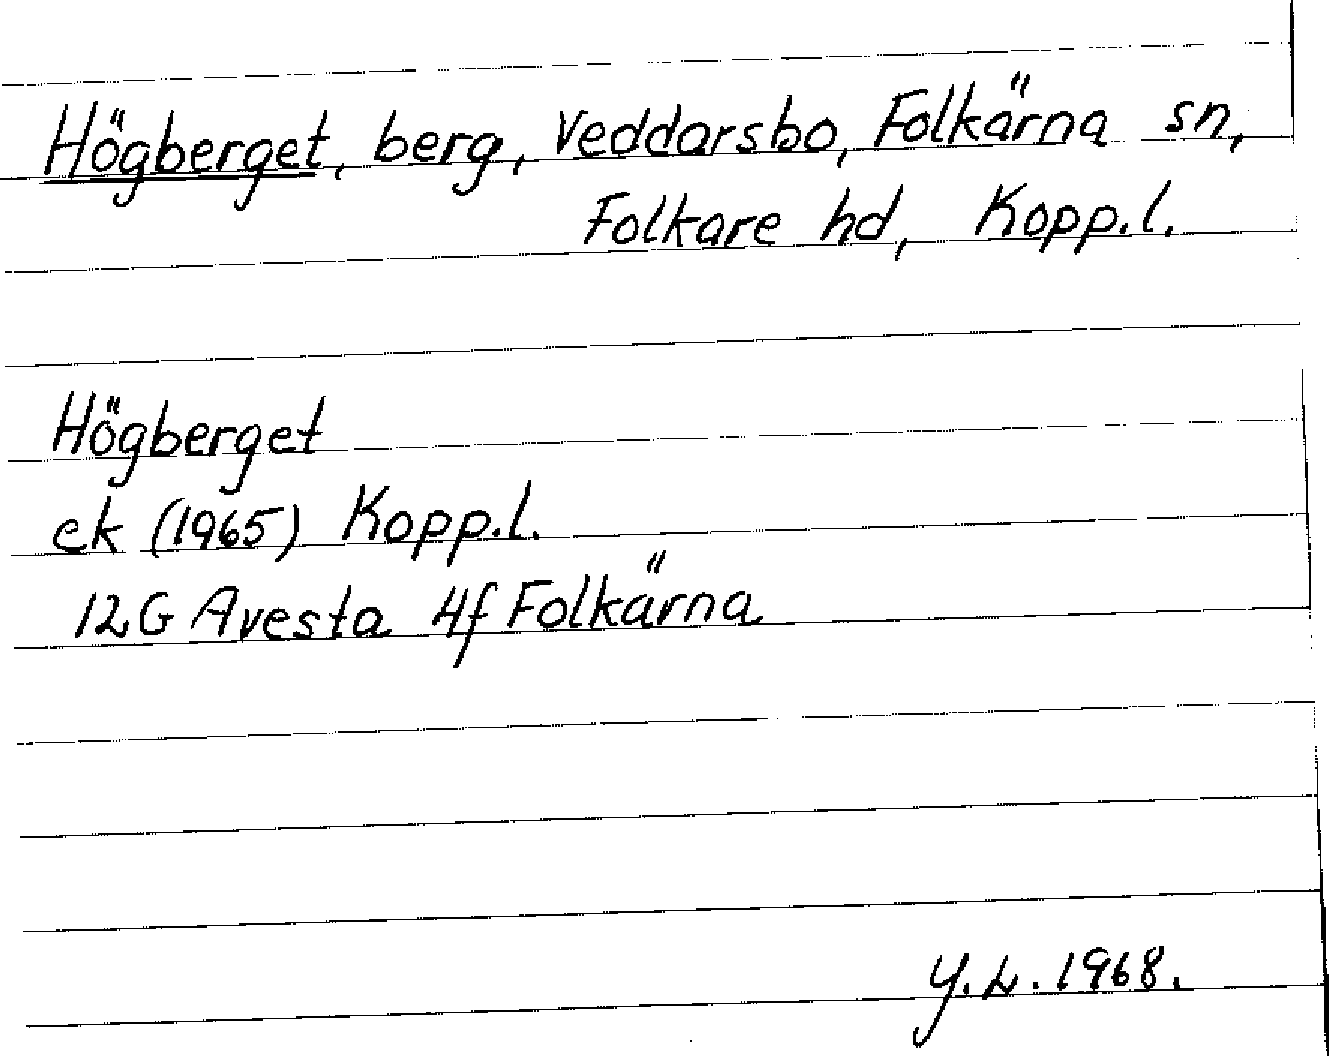 Högberget, berg, Veddarsbo, Folkärna sn,
Folkare hd, Kopp.l.
Högberget
ek (1965) Kopp.l.
12G Avesta 4f Folkärna
Y.L. 1968.